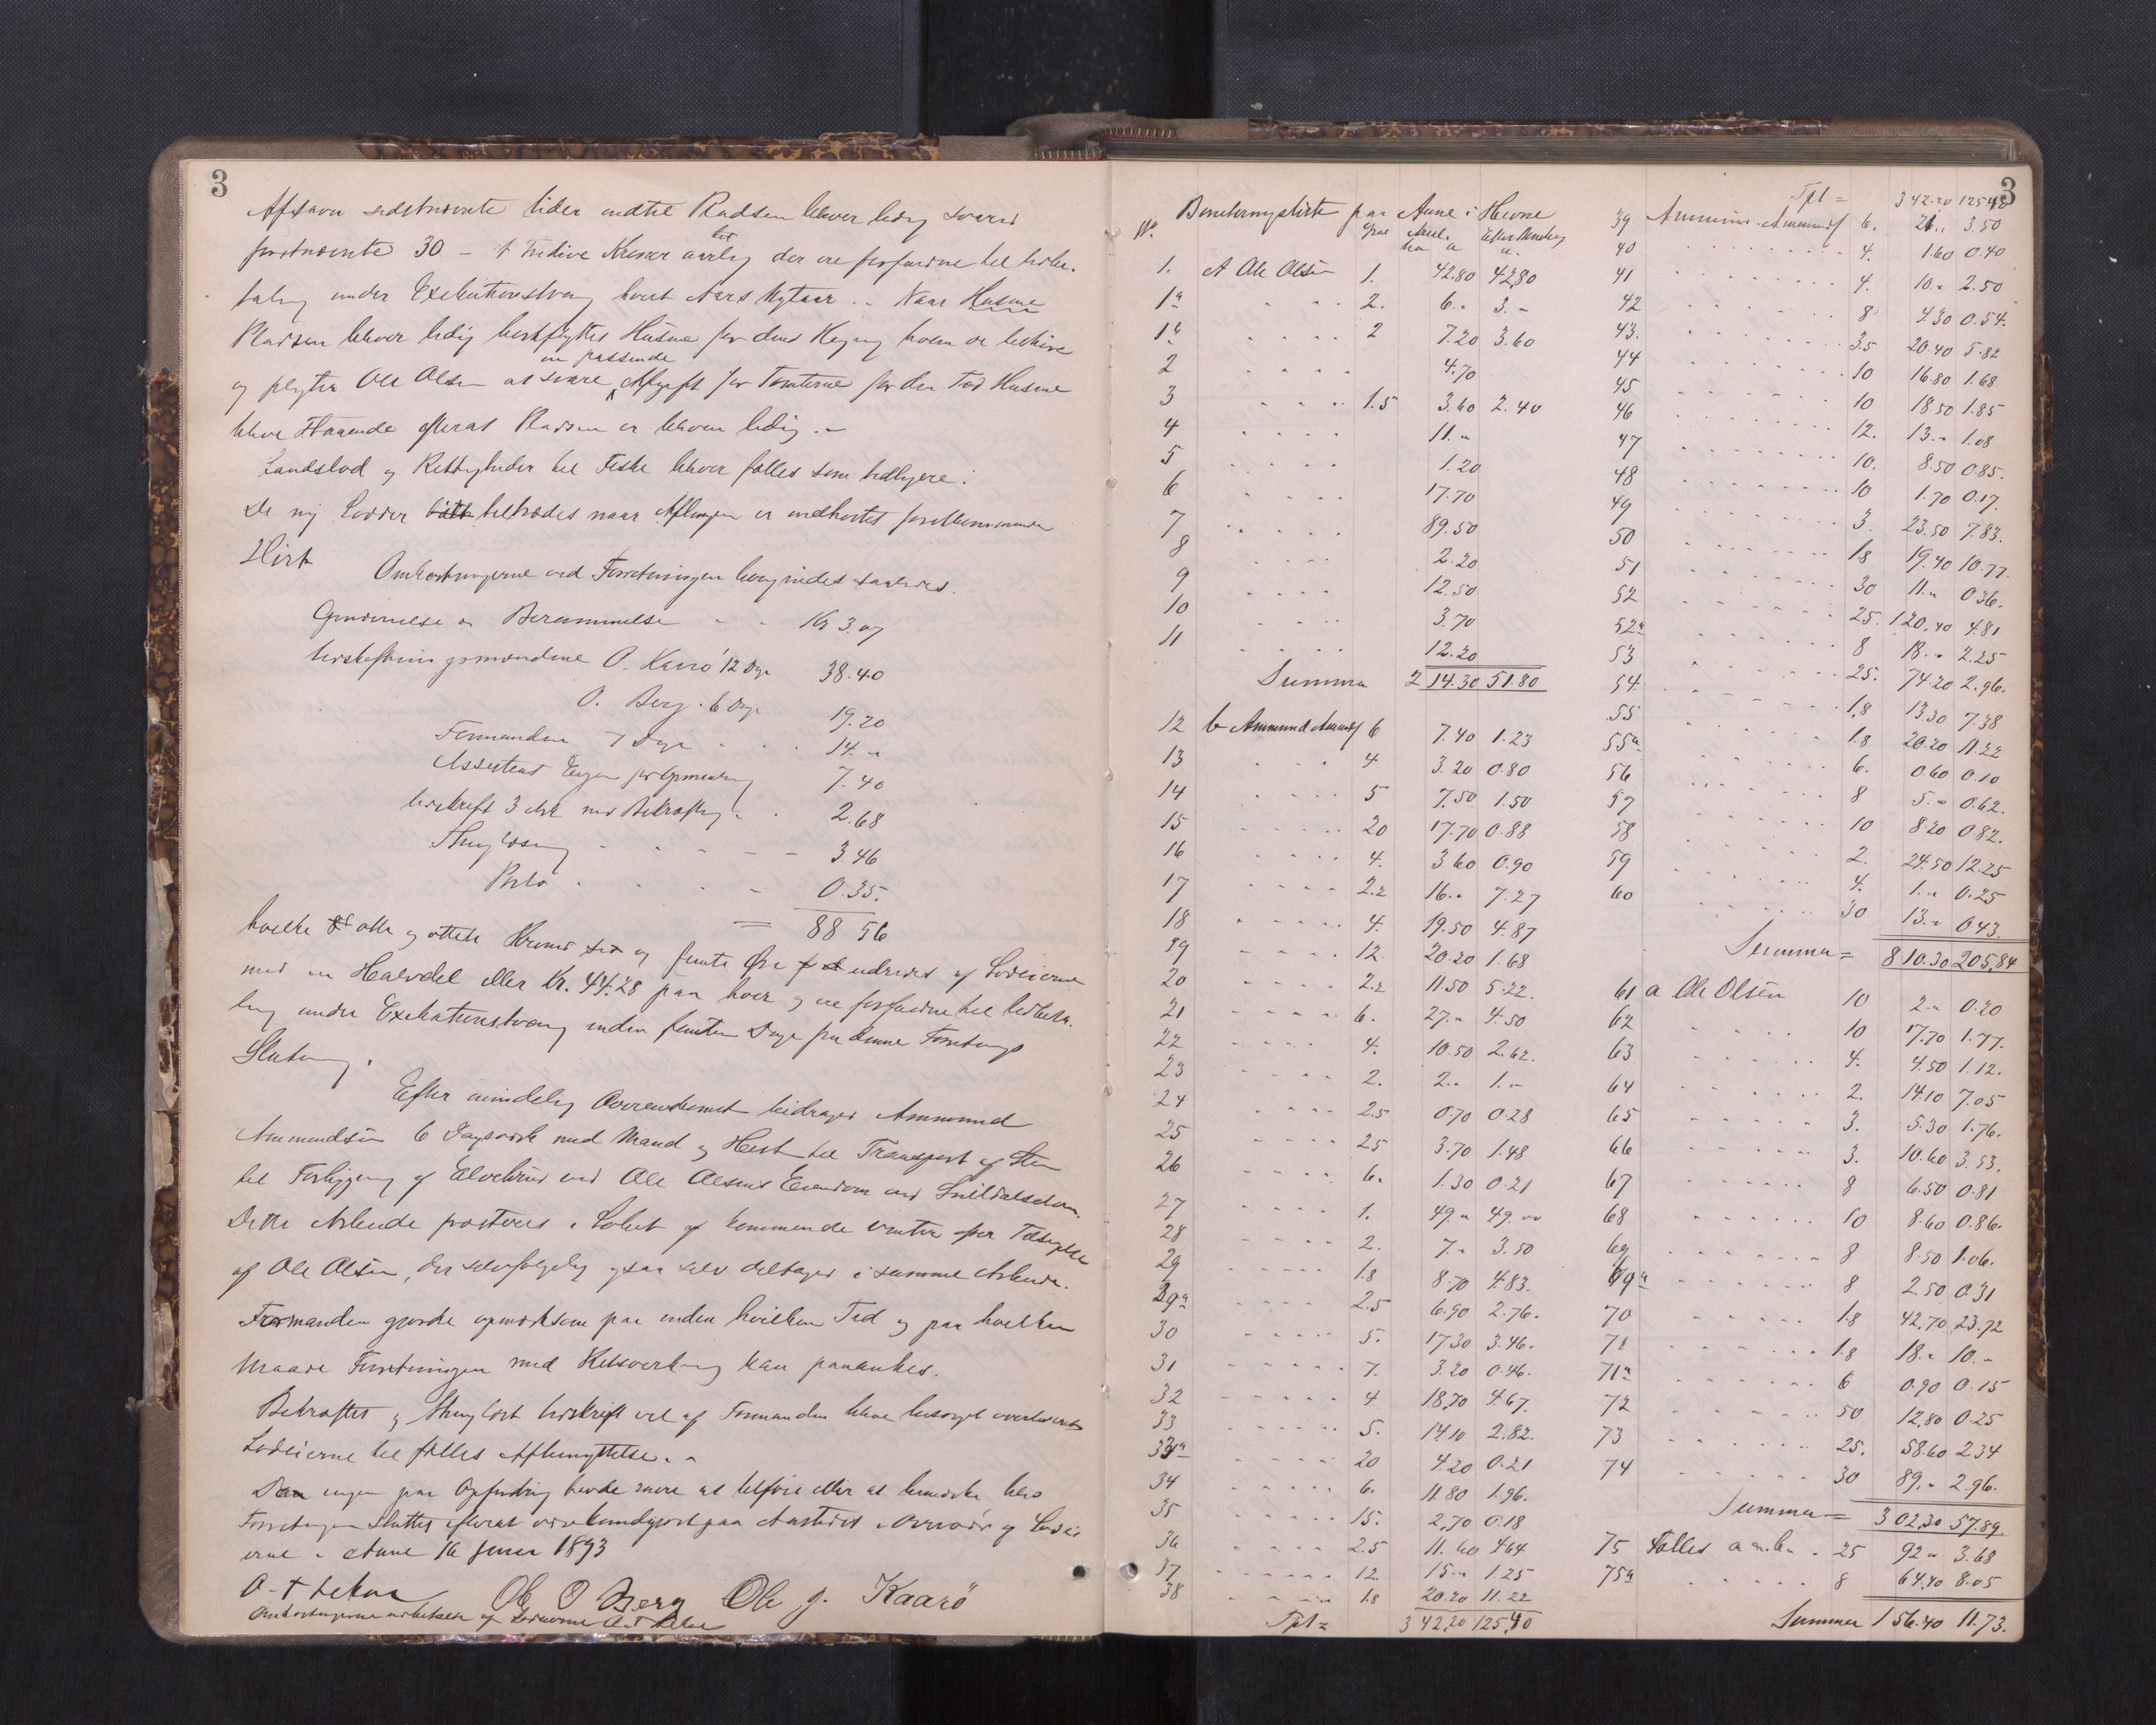 3
Afstaar sidstnævnte uden Pladsen bliver ledig svares
førstnævnte 30 - Tredive Kroner aarlig der ere forfaldne til Udbe-
taling under Exekutionstvang hvert Aars Nytaar. Naar Husene
Pladsen bliver ledig bortflyttes Husene for dens Regning hvem de tilhøre
og pligter Ole Olsen at svare en passende Afgift for Tomterne for den Tid Husene
blive staaende efterat Pladsen er bleven ledig. -
Landslod og Rettigheder til Fiske bliver fælles som tidligere.
De ny Lodder tiltrædes naar Aflingen er indhøstet førstkommende
Høst
Omkostningerne ved Forretningen beregnedes saaledes.
Udskiftningsmændene O. Kaarø 12 Dage 38.40
O. Berg. 6 Dage 19.20
Formanden 7 Dage 14. "
Assistent Engen for Opmaaling 7.40
Udskrift 3 Ark med Bekræftelse 2.68
Thinglæsning 3.46
Porto 0.35.
= 88 56
hvilke otte og otteti Kroner sex og femti Øre udredes af Lodeierne
med en Halvdel eller Kr. 44.28 paa hver og ere forfaldne til Udbeta-
ling under Exekutionstvang inden femten Dage fra denne Forretnings
Slutning.
Efter mindelig Overenskomst bidrager Ammund
Ammundsen 6 Dagsværk med Mand og Hest til Transport af Sten
til Forbygning af Elvebrud ved Ole Olsens Eiendom ved Snildalselven.
Dette Arbeide præsteres i Løbet af kommende Vinter efter Tilsigelse
af Ole Olsen, der selvfølgelig ogsaa selv deltager i samme Arbeide.
Formanden gjorde opmærksom paa inden hvilken Tid og paa hvilken
Maade Forretningen med Retsvirkning kan paaankes.
Bekræftet og thinglæst Udskrift vil af Formanden blive besørget overleveret
Lodeierne til fælles Afbenyttelse. -
Da ingen paa Opfordring havde mere at tilføie eller at bemærke blev
Forretningen sluttet efterat være kundgjort paa Aastedet i Overvær af Lodei-
erne. Aune 16 Juni 1893
Ole O Berg Ole J. Kaarø
Omkostningerne udbetalt af Lodeierne
3
Bonitereringsliste paa Aune i Hevne
No. Grad Areal Efter Bonitering
1. A Ole Olsen 1. 42.80 42.80
1a 2. 6." 3."
1b 2 7.20 3.60
2 4.70
3 1.5 3.60 2.40
4 11."
5 1.20
6 17.70
7 89.50
8 2.20
9 12.50
10 3.70
11 12.20
Summa 214.30 51.80
12 b Ammund Amundsf 6 7.40 1.23
13 4 3.20 0.80
14 5 7.50 1.50
15 20 17.70 0.88
16 4. 3.60 0.90
17 2.2 16." 7.27
18 4. 19.50 4.87
19 12. 20.20 1.68
20 2.2 11.50 5.22.
21 6. 27." 4.50
22 4. 10.50 2.62.
23 2. 2." 1."
24 2.5 0.70 0.28
25 2.5 3.70 1.48
26 6. 1.30 0.21
27 1. 49." 49."
28 2. 7." 3.50
29 1.8 8.70 4.83.
29a 2.5 6.90 2.76.
30 5. 17.30 3.46.
31 7. 3.20 0.46.
32 4 18,70 4.67.
33 5. 14.10 2.82.
33a 20 4.20 0.21
34 6. 11.80 1.96.
35 15. 2,70 0.18
36 2.5 11.60 4.64
37 12. 15." 1.25
38 1.8 20.20 11.22
Tpt = 342,20 125,40
Tpt = 342.20 125.40
39 Ammund Ammundsf 6. 21." 3.50
40 4. 1.60 0.40
41 4. 10." 2.50
42 8 4.30 0.54.
43. 3.5 20.40 5.82
44 10 16.80 1.68
45 10 18.50 1.85
46 12. 13." 1.08
47 10. 8.50 0.85.
48 10 1.70 0.17.
49 3. 23.50 7.83.
50 1.8 19.40 10.77.
51 30 11." 0.36.
52 25. 120.40 4.81
52a 8 18." 2.25
53 25. 74.20 2.96.
54 1,8 13.30 7.38
55 1.8 20.20 11.22
55a 6. 0.60 0.10
56 8 5." 0.62.
57 10 8.20 0.82.
58 2. 24.50 12.25
59 4. 1." 0.25
60 30 13." 0.43.
Summa = 810.30 205,84
61 a Ole Olsen 10 2." 0.20
62 10 17.70 1.77.
63 4. 4.50 1.12.
64 2. 14.10 7.05
65 3. 5.30 1.76.
66 3. 10.60 3.53.
67 8 6.50 0.81
68 10 8.60 0.86.
69 8 8.50 1.06.
69a 8 2.50 0.31
70 1.8 42,70 23.72
71 1.8 18." 10."
71a 6 0.90 0.15
72 50 12,80 0.25
73 25. 58.60 2.34
74 30 89." 2.96.
Summa = 302,30 57.89.
75 Fælles a & b 25 92." 3.68
75a 8 64,40 8.05
Summa 156.40 11.73.